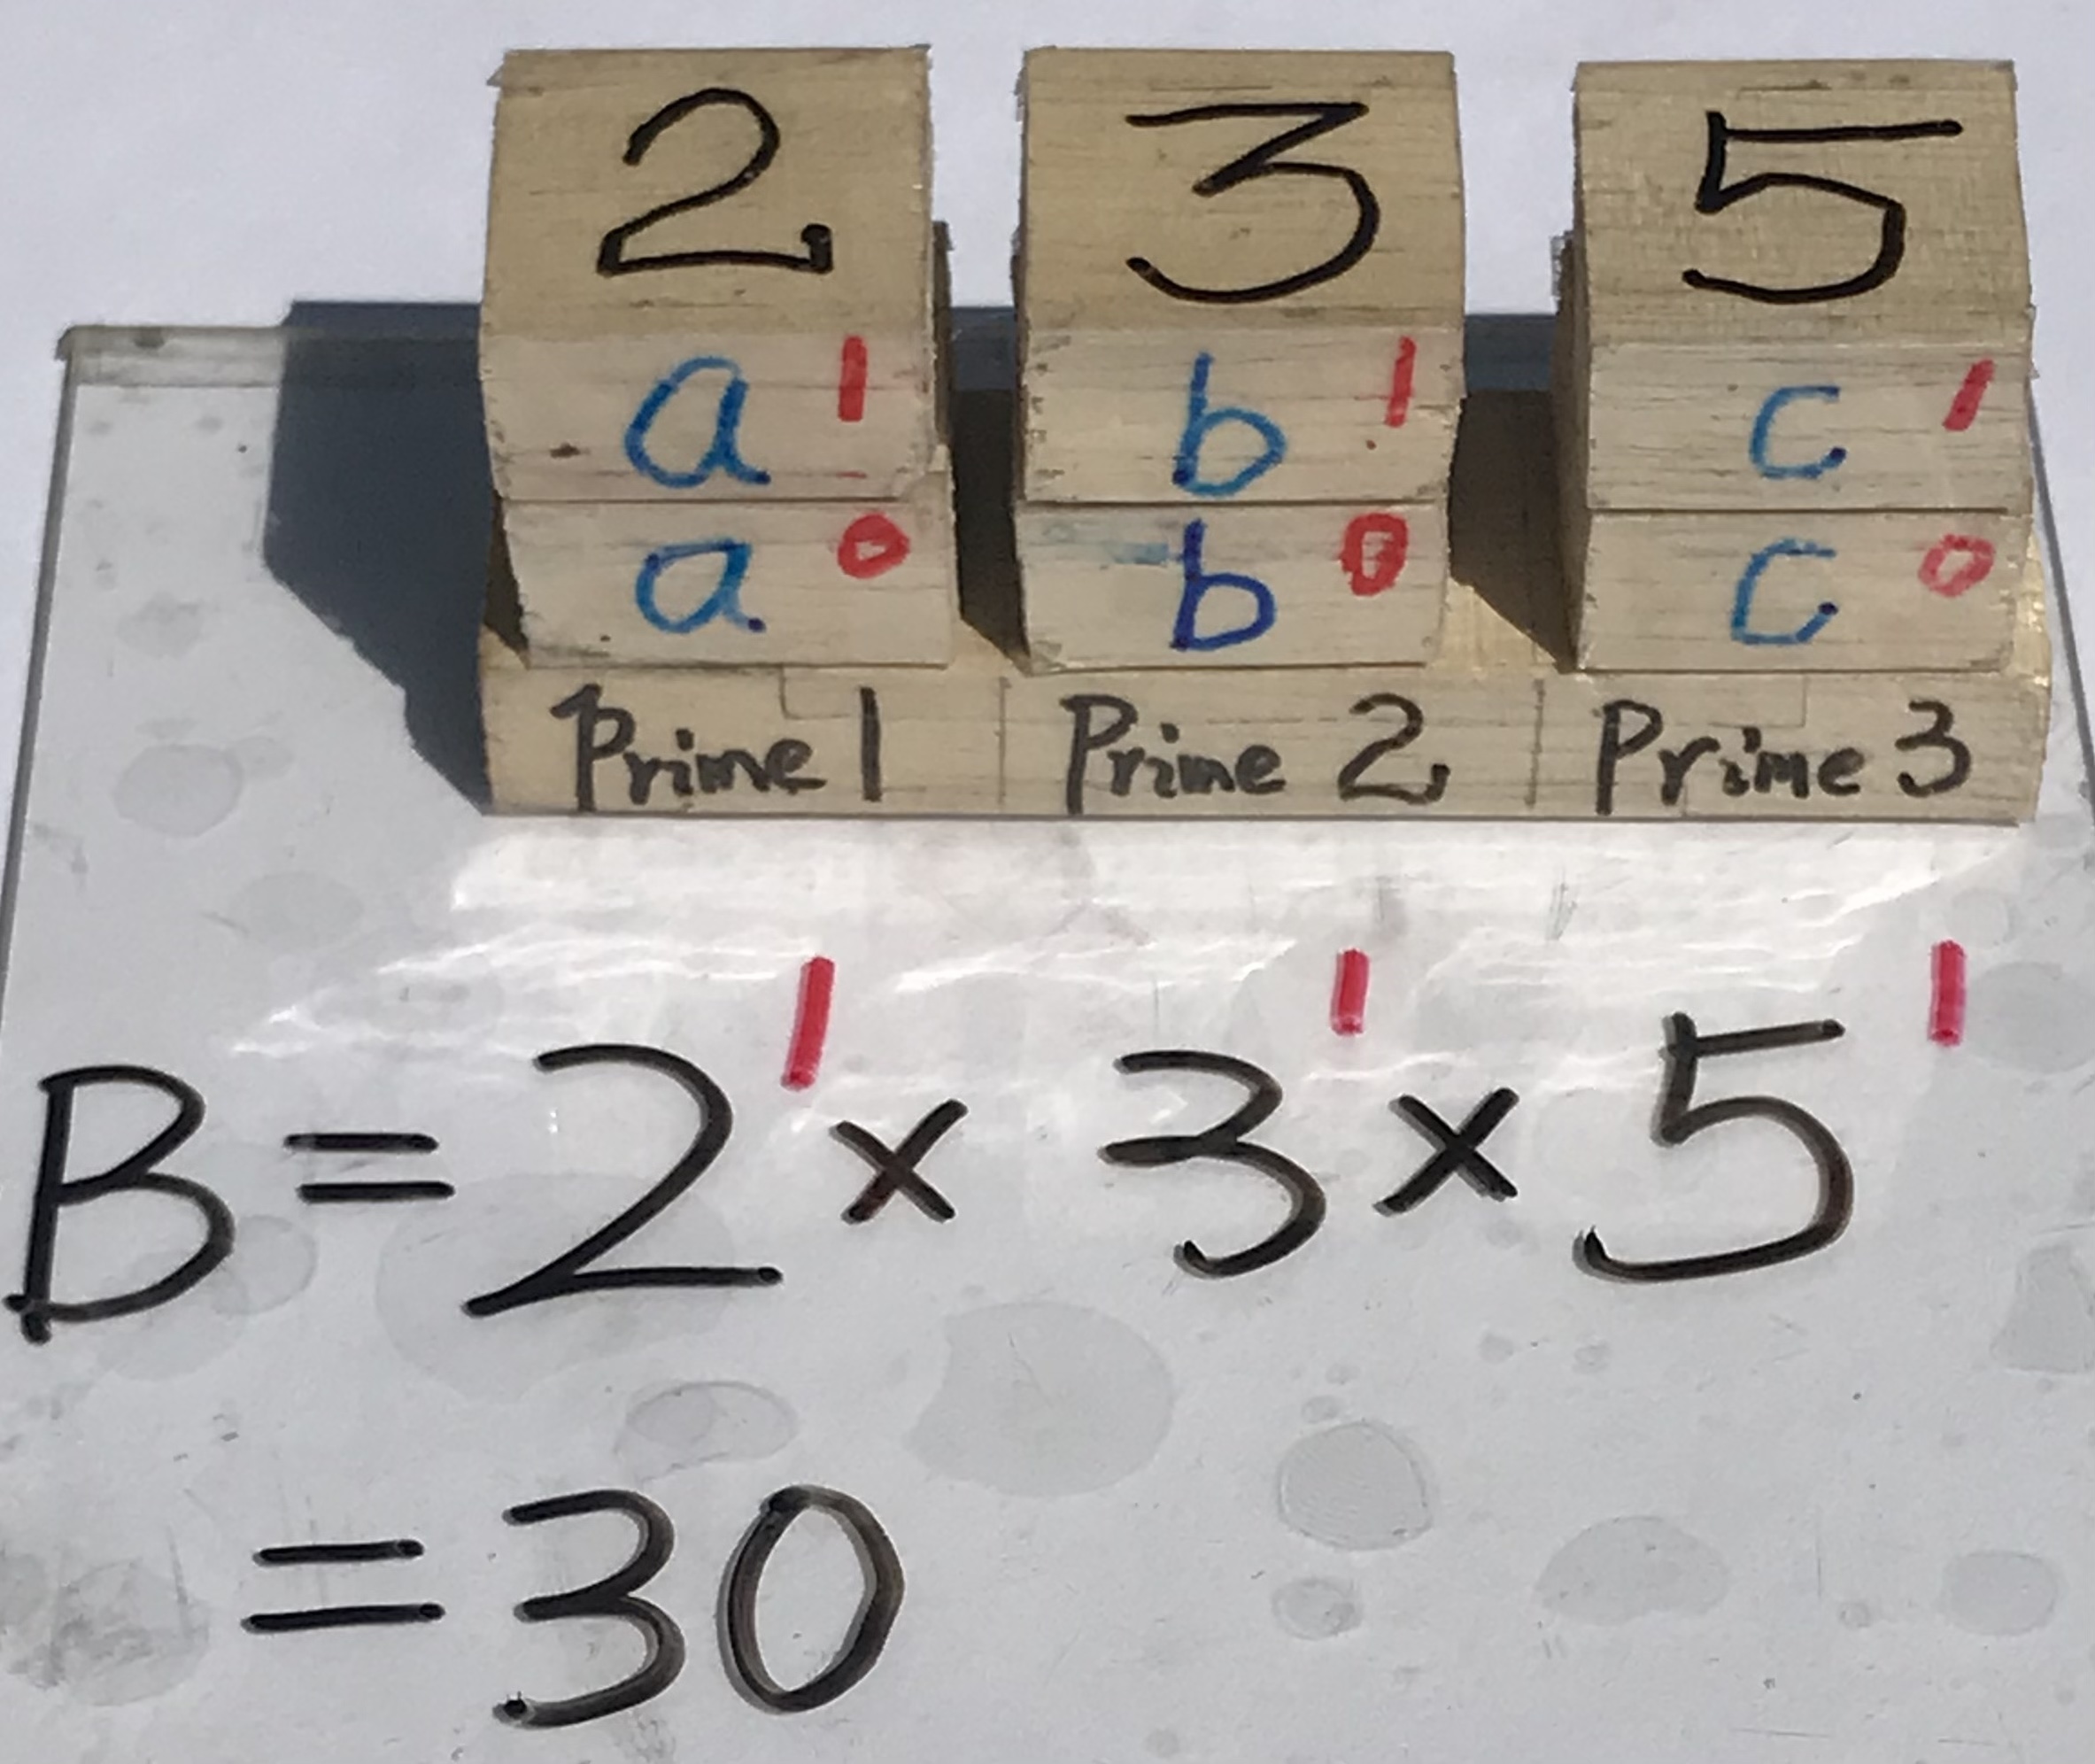 2 3 5
a¹ b¹ c¹
a⁰ b⁰ c⁰
Prime 1 Prime 2 Prime 3
B = 2¹ × 3¹ × 5¹
= 30